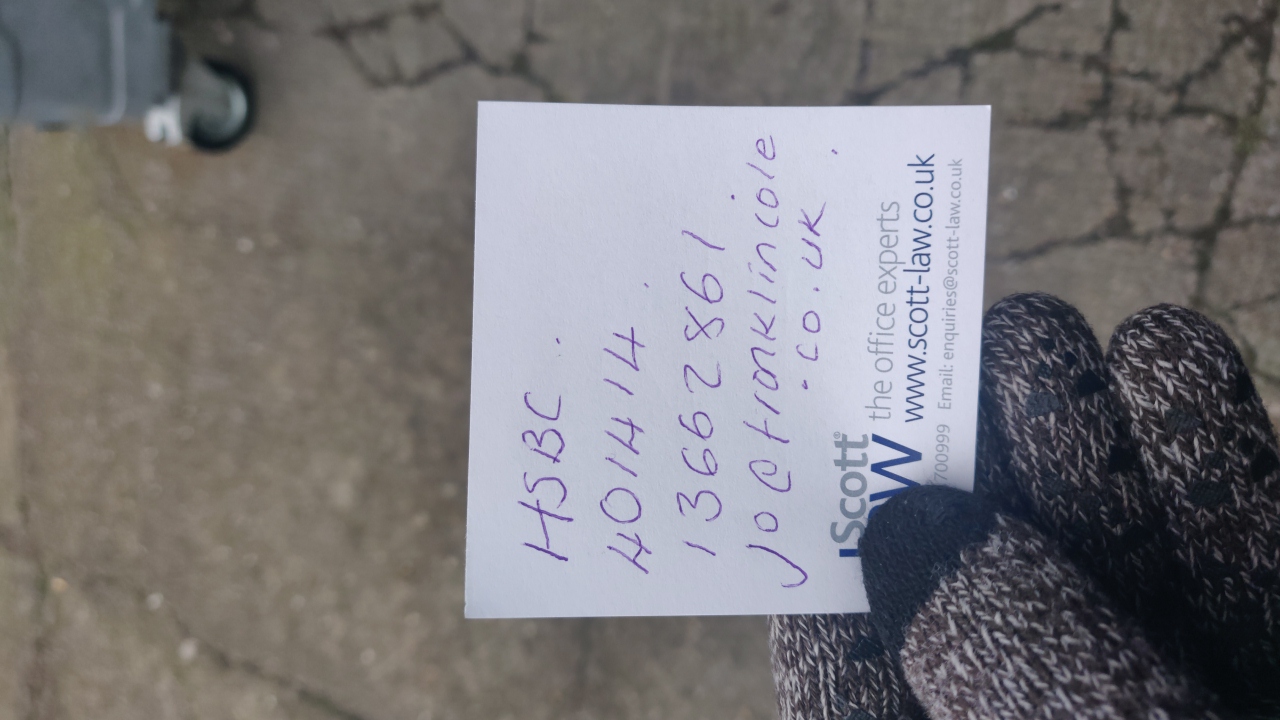 HSBC
401414
13662861
Jo@franklincole
.co.uk
Scott®
the office experts
www.scott-law.co.uk
700999 Email: enquiries@scott-law.co.uk